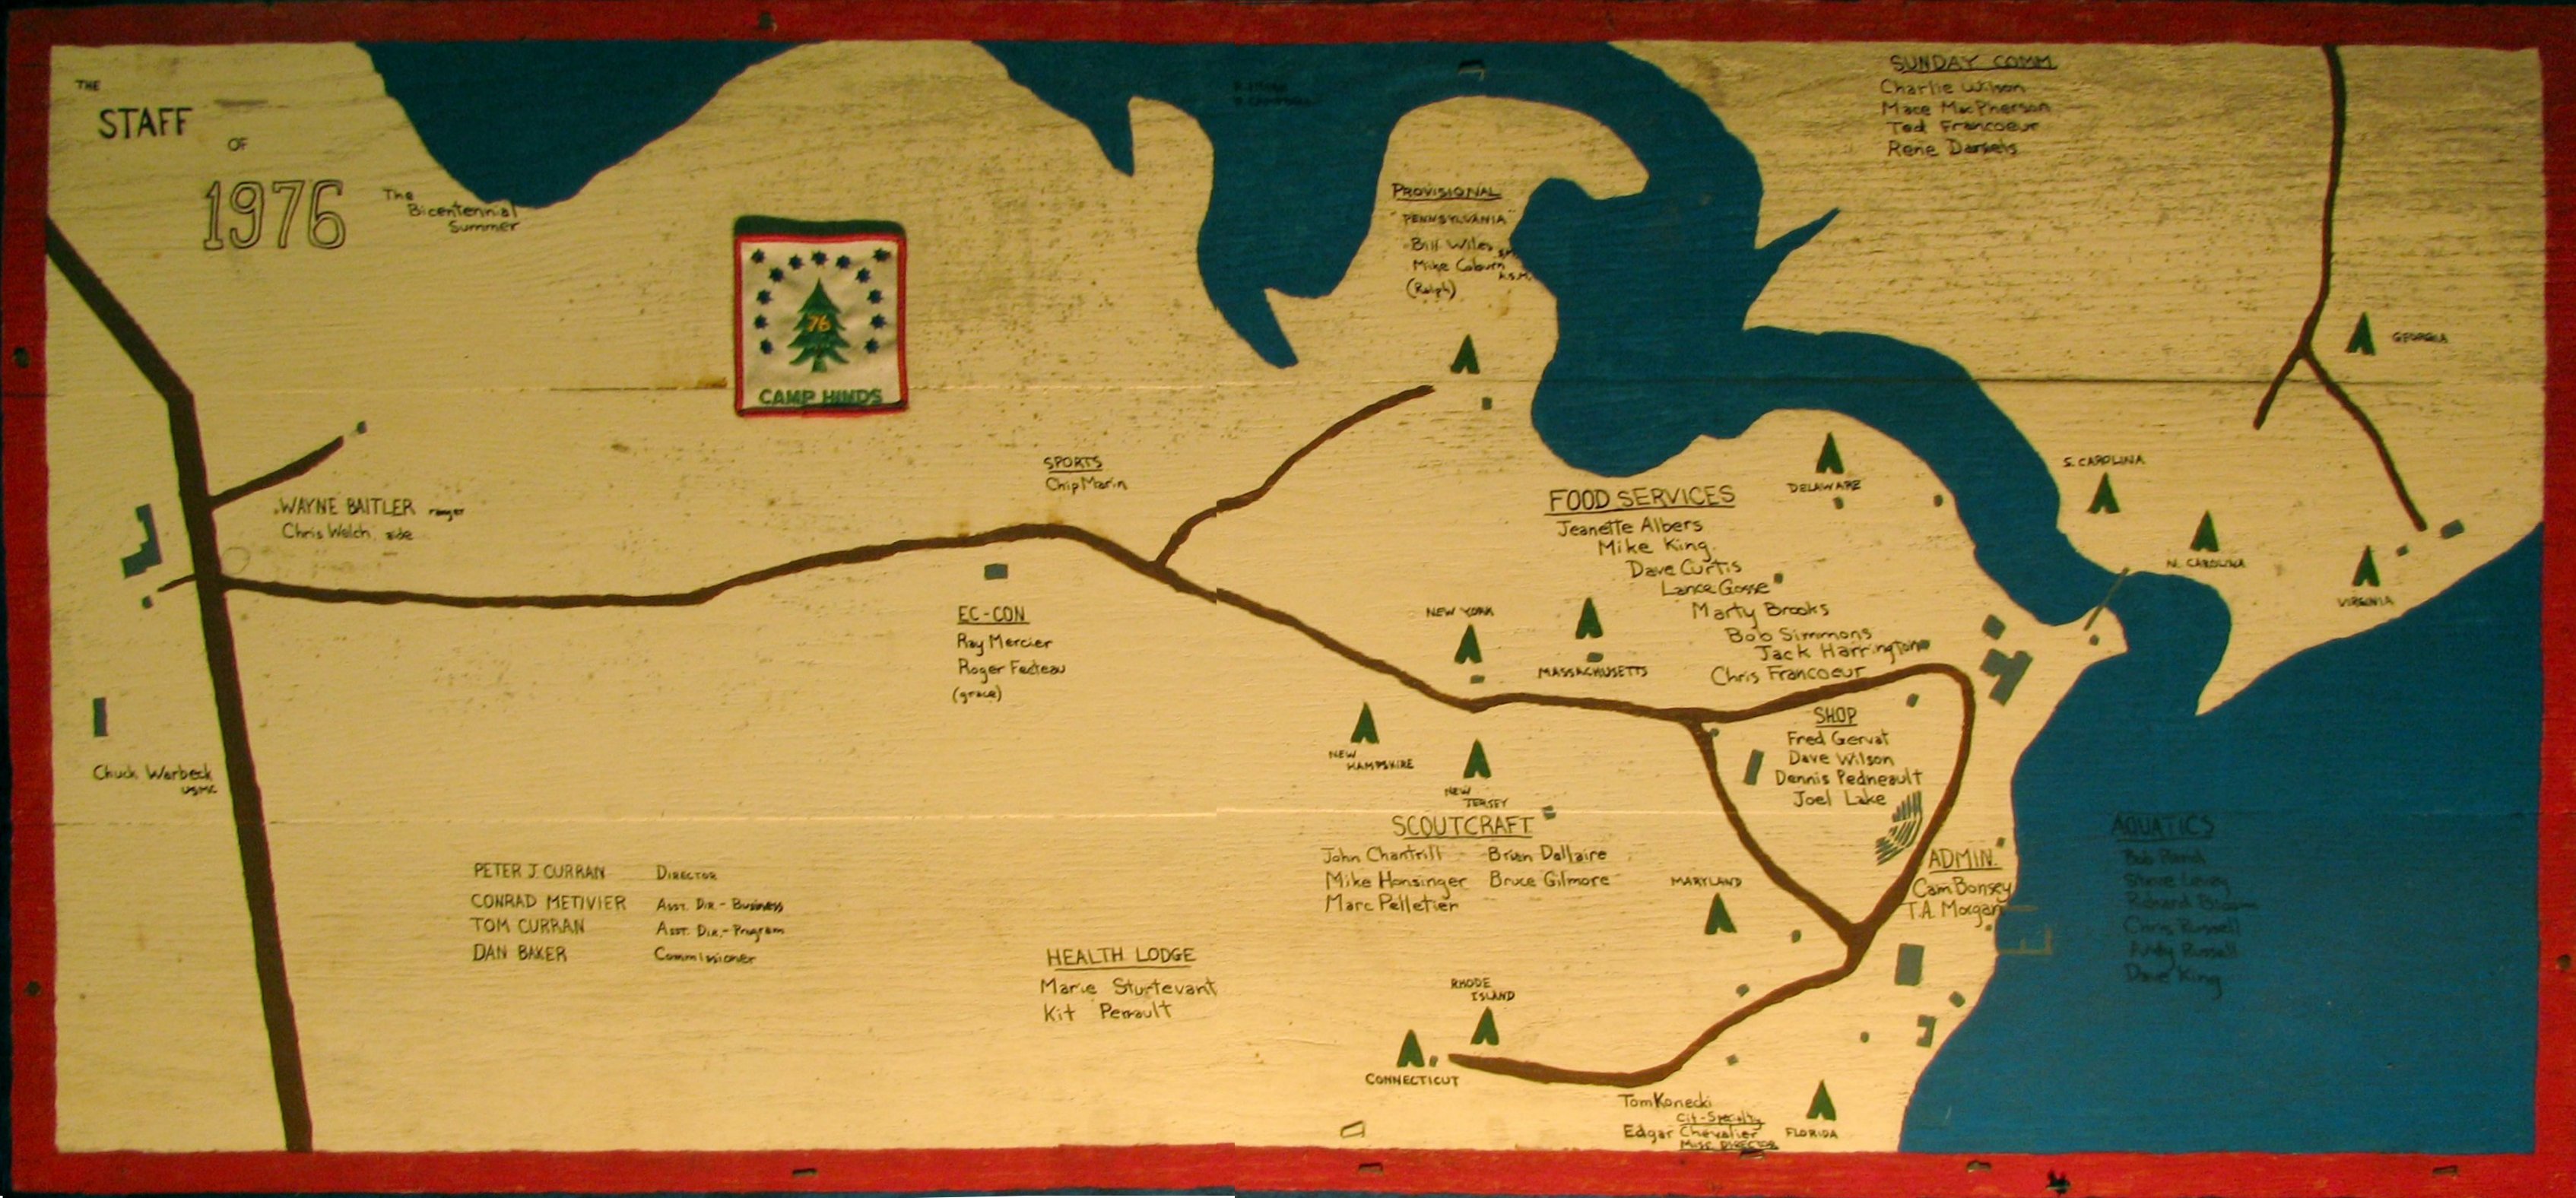 THE
STAFF
OF
1976
The
Bicentennial
Summer
76
CAMP HINDS
SUNDAY COMM.
Charlie Wilson
Mace MacPherson
Ted Francoeur
Rene Daniels
PROVISIONAL
"PENNSYLVANIA"
Bill Wiles S.M.
Mike Coburn A.S.M.
(Ralph)
GEORGIA
SPORTS
Chip Marin
S. CAROLINA
N. CAROLINA
VIRGINIA
DELAWARE
WAYNE BAITLER ranger
Chris Welch aide
FOOD SERVICES
Jeanette Albers
Mike King
Dave Curtis
Lance Gosse
Marty Brooks
Bob Simmons
Jack Harrington
Chris Francoeur
EC-CON
Ray Mercier
Roger Fecteau
(grace)
NEW YORK
MASSACHUSETTS
NEW
HAMPSHIRE
NEW
JERSEY
SHOP
Fred Gervat
Dave Wilson
Dennis Pedneault
Joel Lake
Chuck Warbeck
USMC
SCOUTCRAFT
John Chantrill Brian Dallaire
Mike Honsinger Bruce Gilmore
Marc Pelletier
MARYLAND
ADMIN.
Cam Bonsey
T.A. Morgan
AQUATICS
Bob
Steve
Richard Bloom
Chris Russell
Andy Russell
Dave King
PETER J. CURRAN DIRECTOR
CONRAD METIVIER ASST. DIR - Business
TOM CURRAN ASST. DIR. - Program
DAN BAKER Commissioner
HEALTH LODGE
Marie Sturtevant
Kit Perrault
RHODE
ISLAND
CONNECTICUT
Tom Konecki
Cit-Specialty
Edgar Chevalier
MUSIC DIRECTOR
FLORIDA